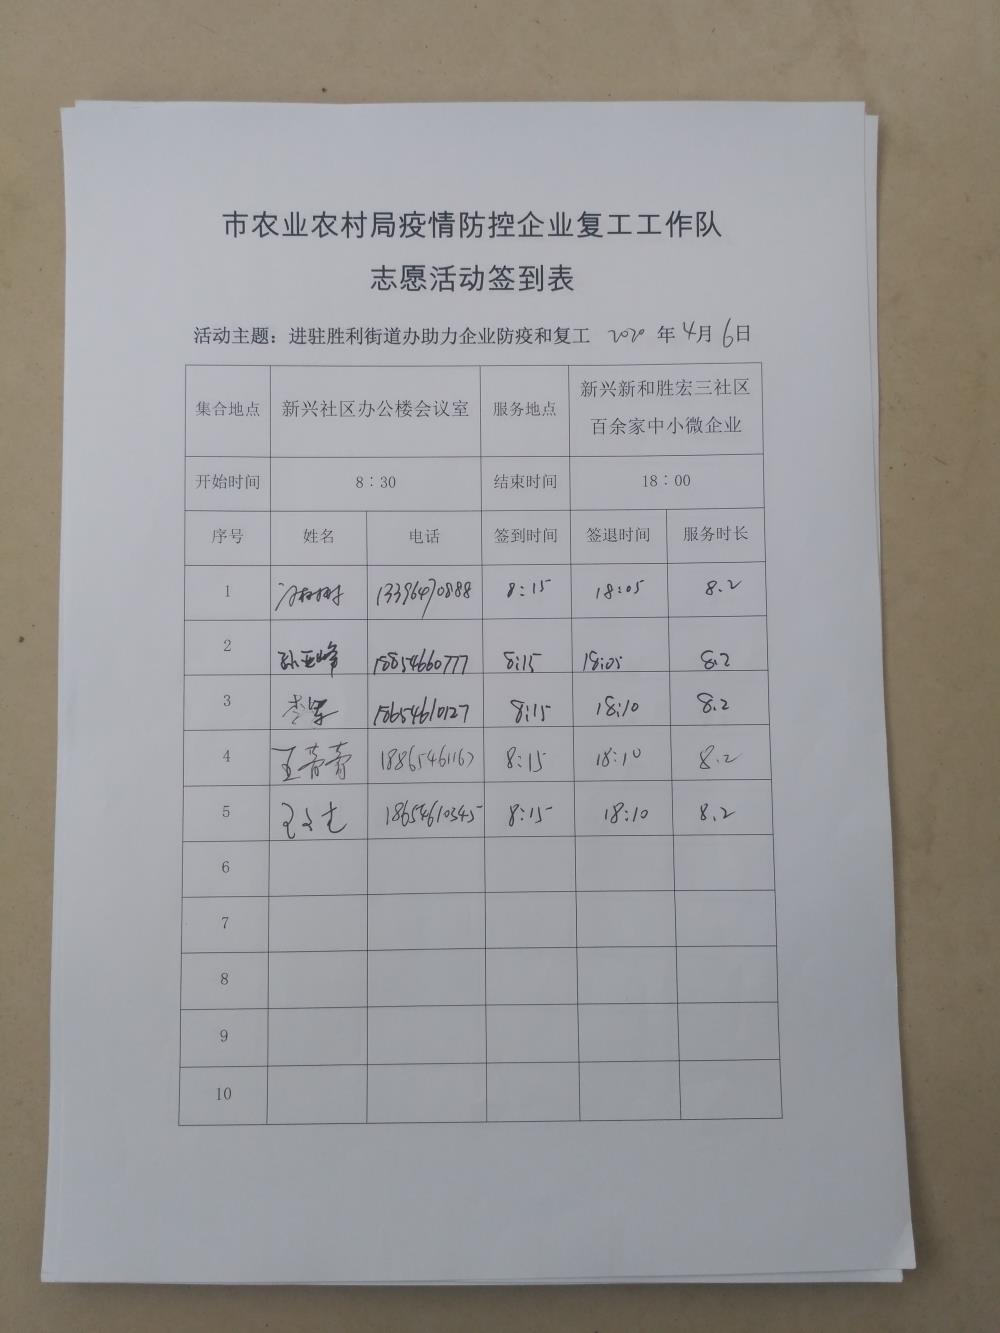 市农业农村局疫情防控企业复工工作队
志愿活动签到表
活动主题：进驻胜利街道办助力企业防疫和复工 2020 年 4月 6日
集合地点 新兴社区办公楼会议室 服务地点 新兴新和胜宏三社区
百余家中小微企业
开始时间 8：30 结束时间 18：00
序号 姓名 电话 签到时间 签退时间 服务时长
1 13396470888 8:15 18:05 8.2
2 孙亚峰 15854660777 8:15 18:05 8.2
3 李军 18654610127 8:15 18:10 8.2
4 王菁菁 18865461167 8:15 18:10 8.2
5 18654610345 8:15 18:10 8.2
6
7
8
9
10